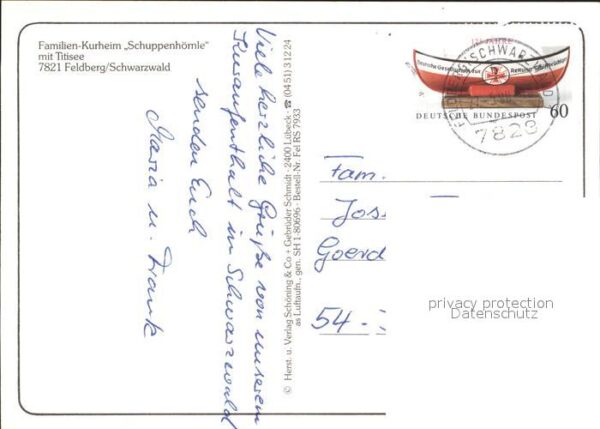 Familien-Kurheim „Schuppenhörnle"
mit Titisee
7821 Feldberg/Schwarzwald
Viele herzliche Grüße von unserem
Kuraufenthalt im Schwarzwald
senden Euch
Maria u. Frank
© Herst. u. Verlag Schöning & Co + Gebrüder Schmidt · 2400 Lübeck · ☎ (0451) 31224
as Luftaufn., gen. SH 1-80696 · Bestell-Nr. Fel RS 7933
Deutsche Gesellschaft zur Rettung Schiffbrüchiger
DEUTSCHE BUNDESPOST 60
7828
Fam.
Jos
Goerd
54 -
privacy protection
Datenschutz